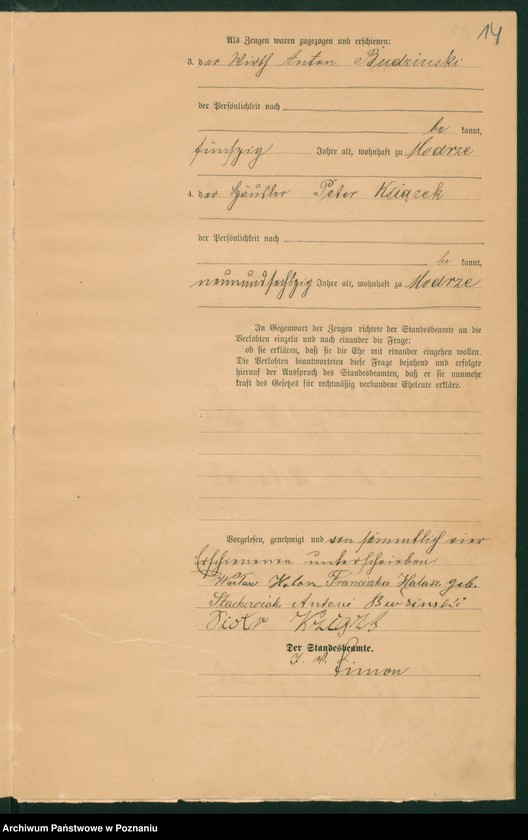 14
Als Zeugen waren zugezogen und erschienen:
3. der Wirth Anton Budzinski
der Persönlichkeit nach
be kannt,
fünfzig Jahre alt, wohnhaft zu Modrze
4. der Häusler Peter Książek
der Persönlichkeit nach
be kannt,
neunundsechszig Jahre alt, wohnhaft zu Modrze
In Gegenwart der Zeugen richtete der Standesbeamte an die
Verlobten einzeln und nach einander die Frage:
ob sie erklären, daß sie die Ehe mit einander eingehen wollen.
Die Verlobten beantworteten diese Frage bejahend und erfolgte
hierauf der Ausspruch des Standesbeamten, daß er sie nunmehr
kraft des Gesetzes für rechtmäßig verbundene Eheleute erkläre.
Vorgelesen, genehmigt und von sämmtlich vier
Erschienenen unterschrieben
Franciszka geb.
Stachowiak Antoni Budzinski
Piotr
Der Standesbeamte.
J. V. Simon
Archiwum Państwowe w Poznaniu